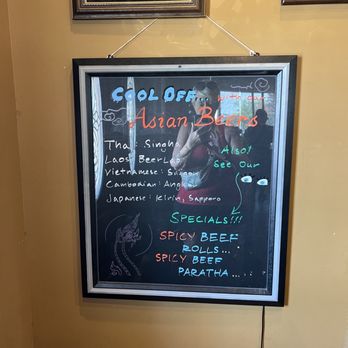 COOL OFF... with our
Asian Beers
Thai: Singha
Laos: BeerLao
Vietnamese:
Cambodian: Angkor
Japanese: Kirin, Sapporo
Also!
See our
SPECIALS!!!
SPICY BEEF
ROLLS...
SPICY BEEF
PARATHA...